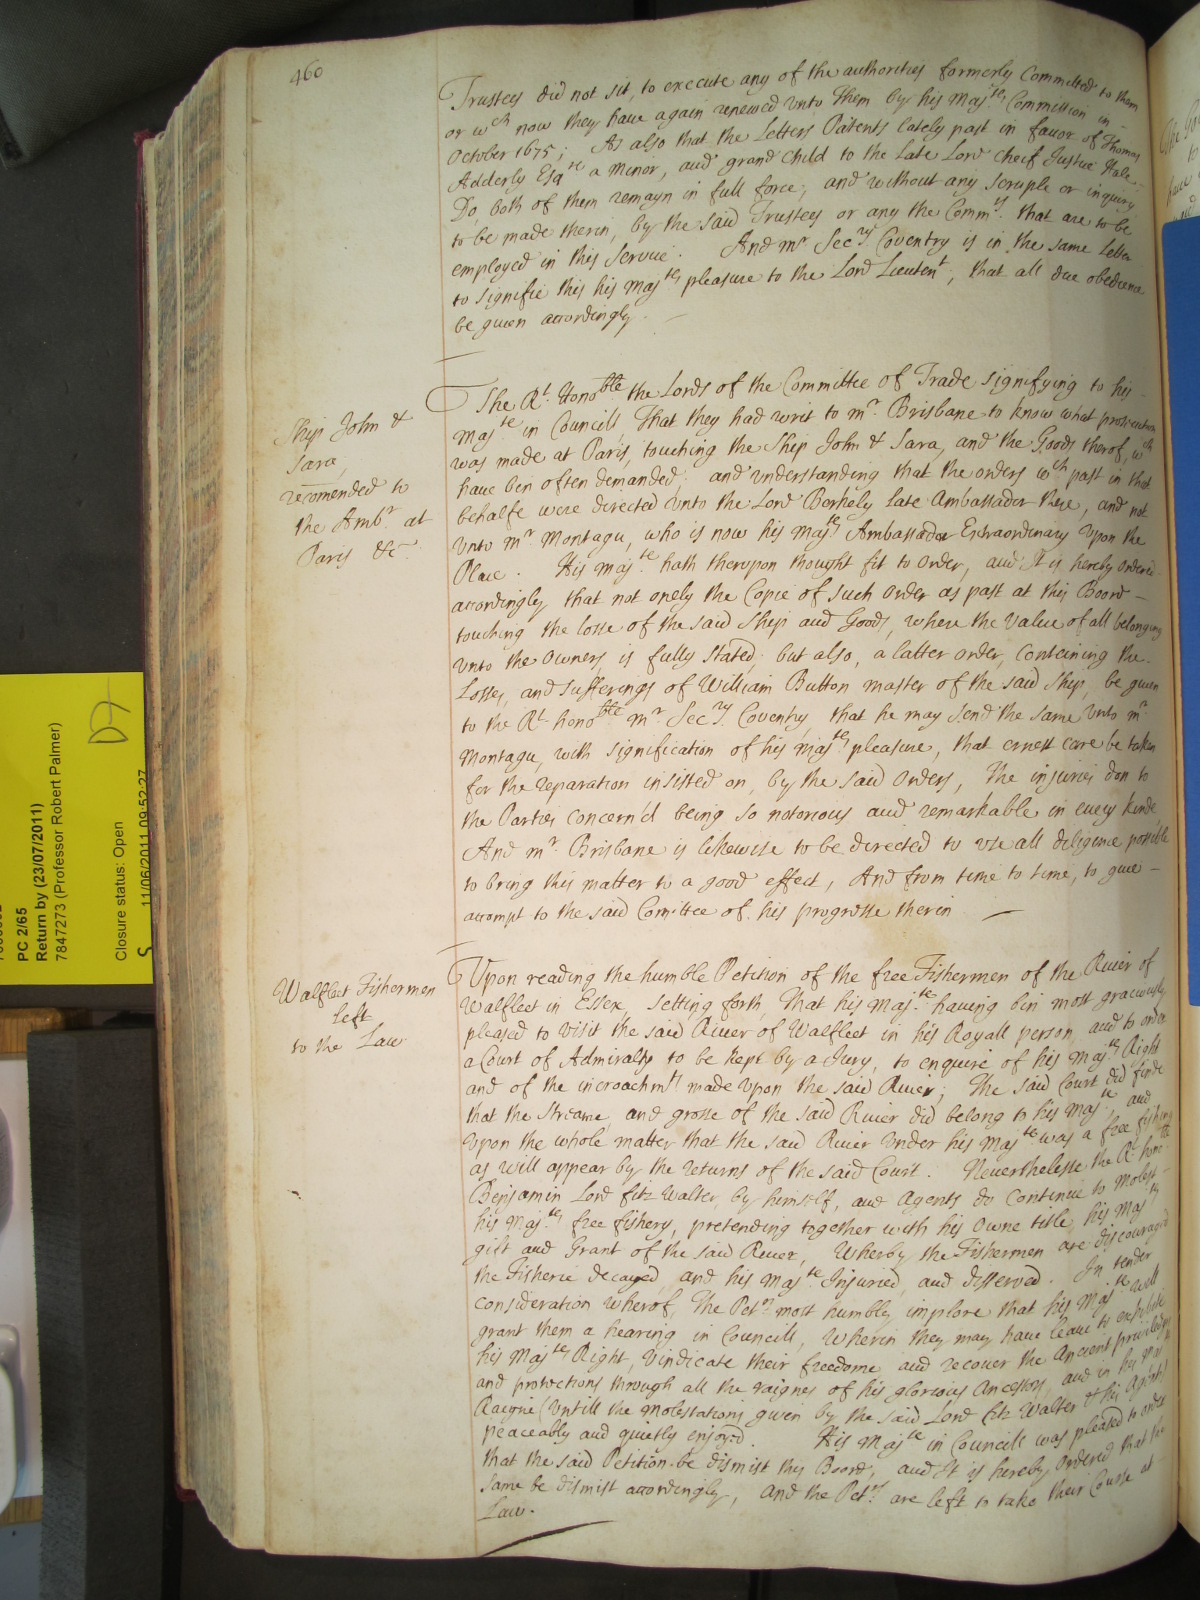 460
Trustees did not sit, to execute any of the authorities formerly Committed to them
or wch now they have again renewed vnto them by his Majties Commission in
October 1675; As also that the Letters Patents lately past in favor of Thomas
Adderly Esqre a minor, and grand Child to the Late Lord cheif Justice Hale
Do both of them remayn in full force; and without any scruple or inquiry
to be made therin, by the said Trustees or any the Commrs that are to be
employed in this Service. And mr Secry Coventry is in the same Letter
to signifie this his Majtes pleasure to the Lord Lieutent, that all due obedience
be given accordingly.
Ship John &
Sara,
recomended to
the Ambr at
Paris &c
The Rt Honoble the Lords of the Committee of Trade signifying to his
Majte in Councill That they had writ to mr Brisbane to know what prosecution
was made at Paris, touching the Ship John & Sara, and the Goods therof, wch
have bin often demanded; and understanding that the orders wch past in that
behalfe were directed vnto the Lord Berkely late Ambassador there, and not
vnto mr Montagu, who is now his Majtes Ambassador Extraordinary vpon the
Place. His Majte hath therupon thought fit to order, and It is hereby ordered
accordingly that not onely the Copie of such Order as past at this Boord
touching the losse of the said Ship and Goods, where the value of all belonging
vnto the Owners is fully stated; but also, a latter order, Conteining the
Losses, and sufferings of William Button master of the said Ship, be given
to the Rt honoble mr Secry Coventry, that he may send the same vnto mr
Montagu, with signification of his Majtes pleasure, that ernest care be taken
for the reparation insisted on, by the said Orders, The injuries don to
the Parties concern'd being so notorious and remarkable in every kinde,
And mr Brisbane is likewise to be directed to vse all diligence possible
to bring this matter to a good effect, And from time to time, to give
accompt to the said Comittee of his progresse therin
Walfleet Fishermen
left
to the Law
Vpon reading the humble Petition of the free Fishermen of the River of
Walfleet in Essex, setting forth, That his Majte having bin most graciously
pleased to visit the said River of Walfleet in his Royall person, and to order
a Court of Admiralty to be kept by a Jury, to enquire of his Majtes Right
and of the incroachmts made vpon the said River; The said Court did finde
that the Streame, and grosse of the said River did belong to his Majte, and
vpon the whole matter that the said River vnder his Majte was a free fishery
as will appear by the returns of the said Court. Neverthelesse the Rt honoble
Benjamin Lord fitz Walter, by himself, and Agents do Continue to molest
his Majtes free fishery, pretending together with his owne title, his Majtes
gift and Grant of the said River, Wherby the Fishermen are discouraged
the Fisherie decayed, and his Majte Injuried, and disserved. In tender
consideration wherof, The Petrs most humbly implore that his Majte will
grant them a hearing in Councill, Wherin they may have leave to exhibite
his Majtes Right, Vindicate their freedome and recover the Ancient priviledges
and protections through all the raignes of his glorious Ancestors, and in his own
Raigne (vntill the molestations given by the said Lord fitz Walter & his Agents)
peaceably and quietly enjoyed. His Majte in Councill was pleased to order
that the said Petition be dismist this Boord, and It is hereby Ordered that the
same be dismist accordingly, And the Petrs are left to take their Course at
Law.
PC 2/65
Return by (23/07/2011)
7847273 (Professor Robert Palmer)
Closure status: Open
S 11/06/2011 09:52:27
D7